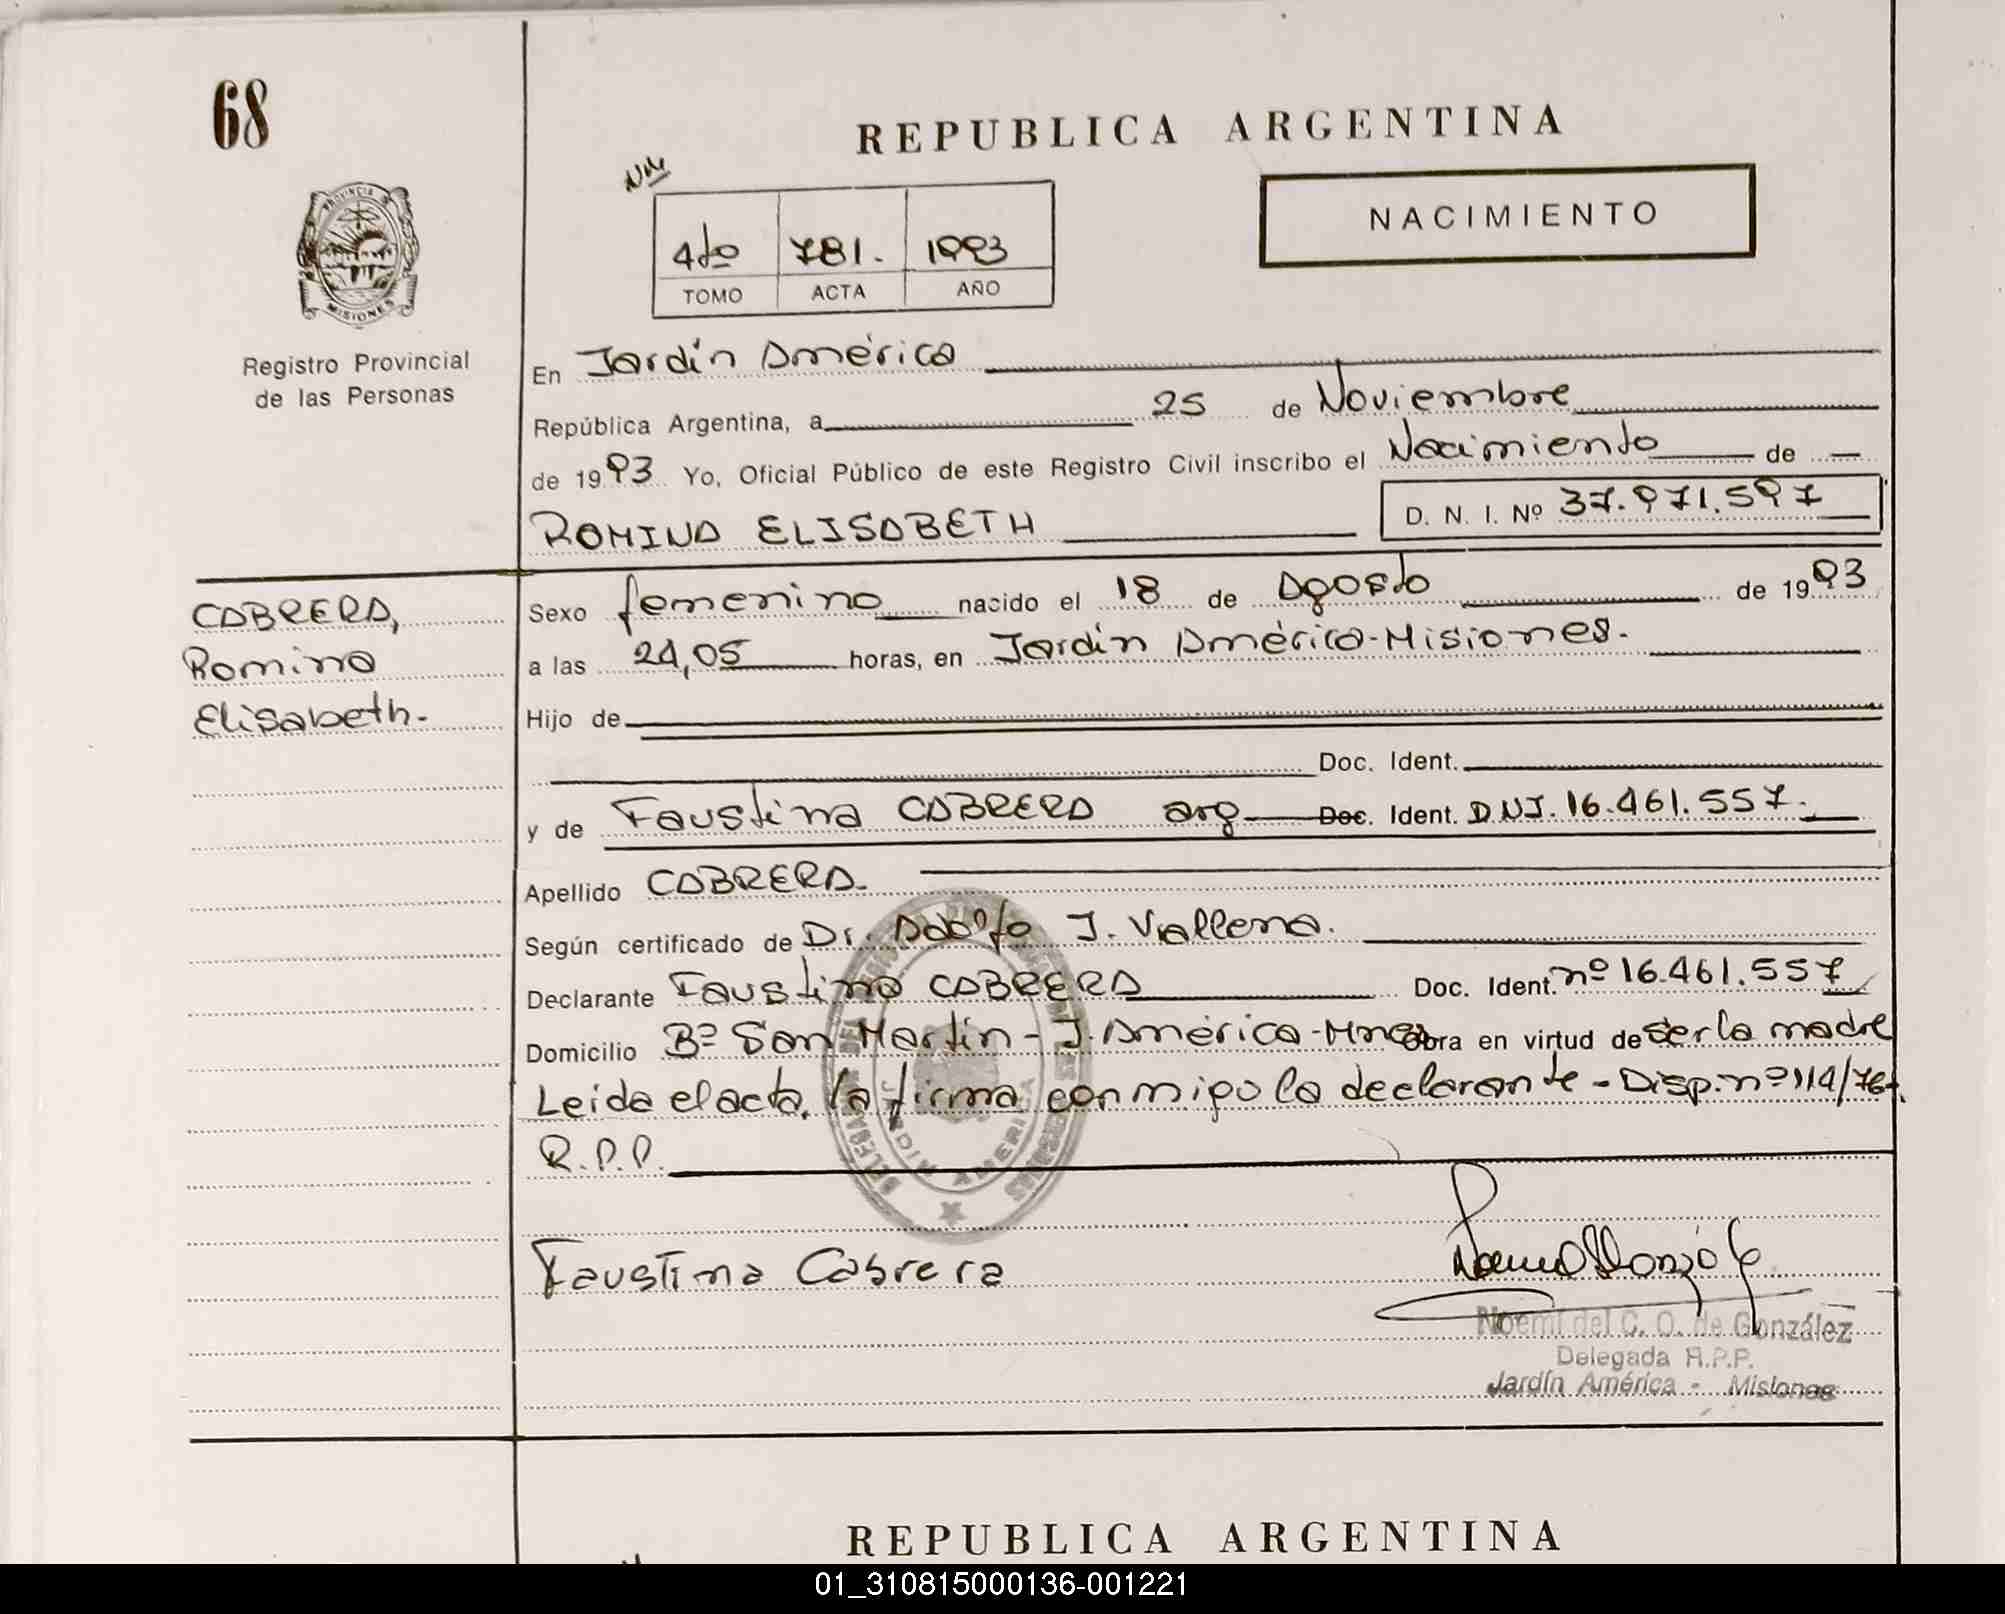 68
REPUBLICA ARGENTINA
NACIMIENTO
4to 781. 1993
TOMO ACTA AÑO
PROVINCIA DE MISIONES
Registro Provincial
de las Personas
En Jardín América
República Argentina, a 25 de Noviembre
de 1993 Yo, Oficial Público de este Registro Civil inscribo el Nacimiento de
ROMINA ELISABETH D. N. I. Nº 37.971.597
CABRERA,
Romina
Elisabeth.
Sexo femenino nacido el 18 de Agosto de 1993
a las 24,05 horas, en Jardín América-Misiones.
Hijo de
Doc. Ident.
y de Faustina CABRERA arg Doc. Ident. DNI. 16.461.557.
Apellido CABRERA.
Según certificado de Dr. Adolfo J. Vallena.
Declarante Faustina CABRERA Doc. Ident. nº 16.461.557
Domicilio Bº San Martín - J. América-Mnes obra en virtud de ser la madre
Leida el acta, la firma conmigo la declarante - Disp. nº 114/76
R.P.P.
Faustina Cabrera
Noemí del C. O. de González
Delegada R.P.P.
Jardín América - Misiones
REPUBLICA ARGENTINA
01_310815000136-001221